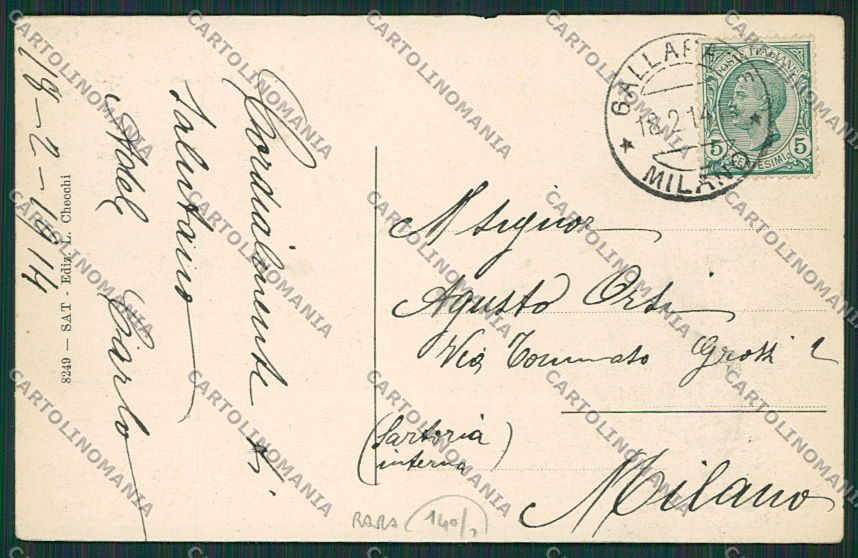 18-2-1914
Cordialmente ti
salutano
Adel Carlo
8249 — SAT - Ediz. L. Checchi
GALLARATE
18.2.14
MILANO
POSTE ITALIANE
5 5
CENTESIMI
Al signor
Agusto Orsi
Via Tommaso Grossi 2
(Sartoria
interna)
Milano
RARA 140/
CARTOLINOMANIA